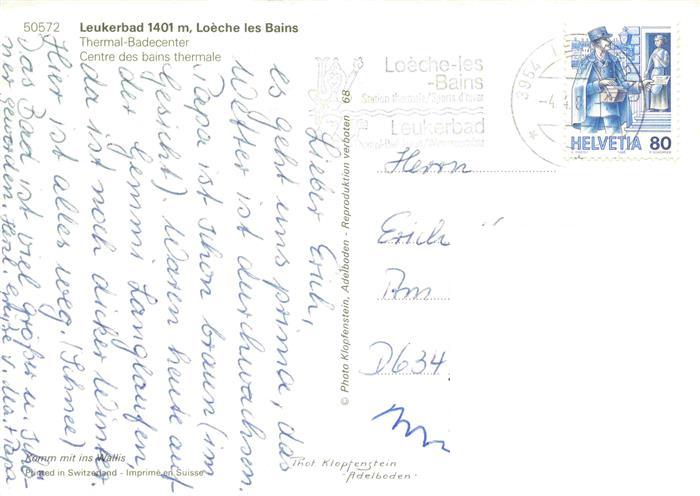 50572 Leukerbad 1401 m, Loèche les Bains
Thermal-Badecenter
Centre des bains thermale
Lieber Erich,
es geht uns prima, das
Wetter ist durchwachsen.
Papa ist schon braun (im
Gesicht). Waren heute auf
der Gemmi Langlaufen,
da ist noch dicker Winter.
Hier ist alles weg. (Schnee)
Das Bad ist viel größer u.
ner geworden. Herzl. Grüße v. Ma. + Papa
Komm mit ins Wallis
Printed in Switzerland - Imprimé en Suisse
© Photo Klopfenstein, Adelboden - Reproduktion verboten 68
Phot Klopfenstein
Adelboden
Loèche-les
-Bains
Station thermale/Sports d'hiver
Leukerbad
3954
HELVETIA 80
Herrn
Erich
Am
D634